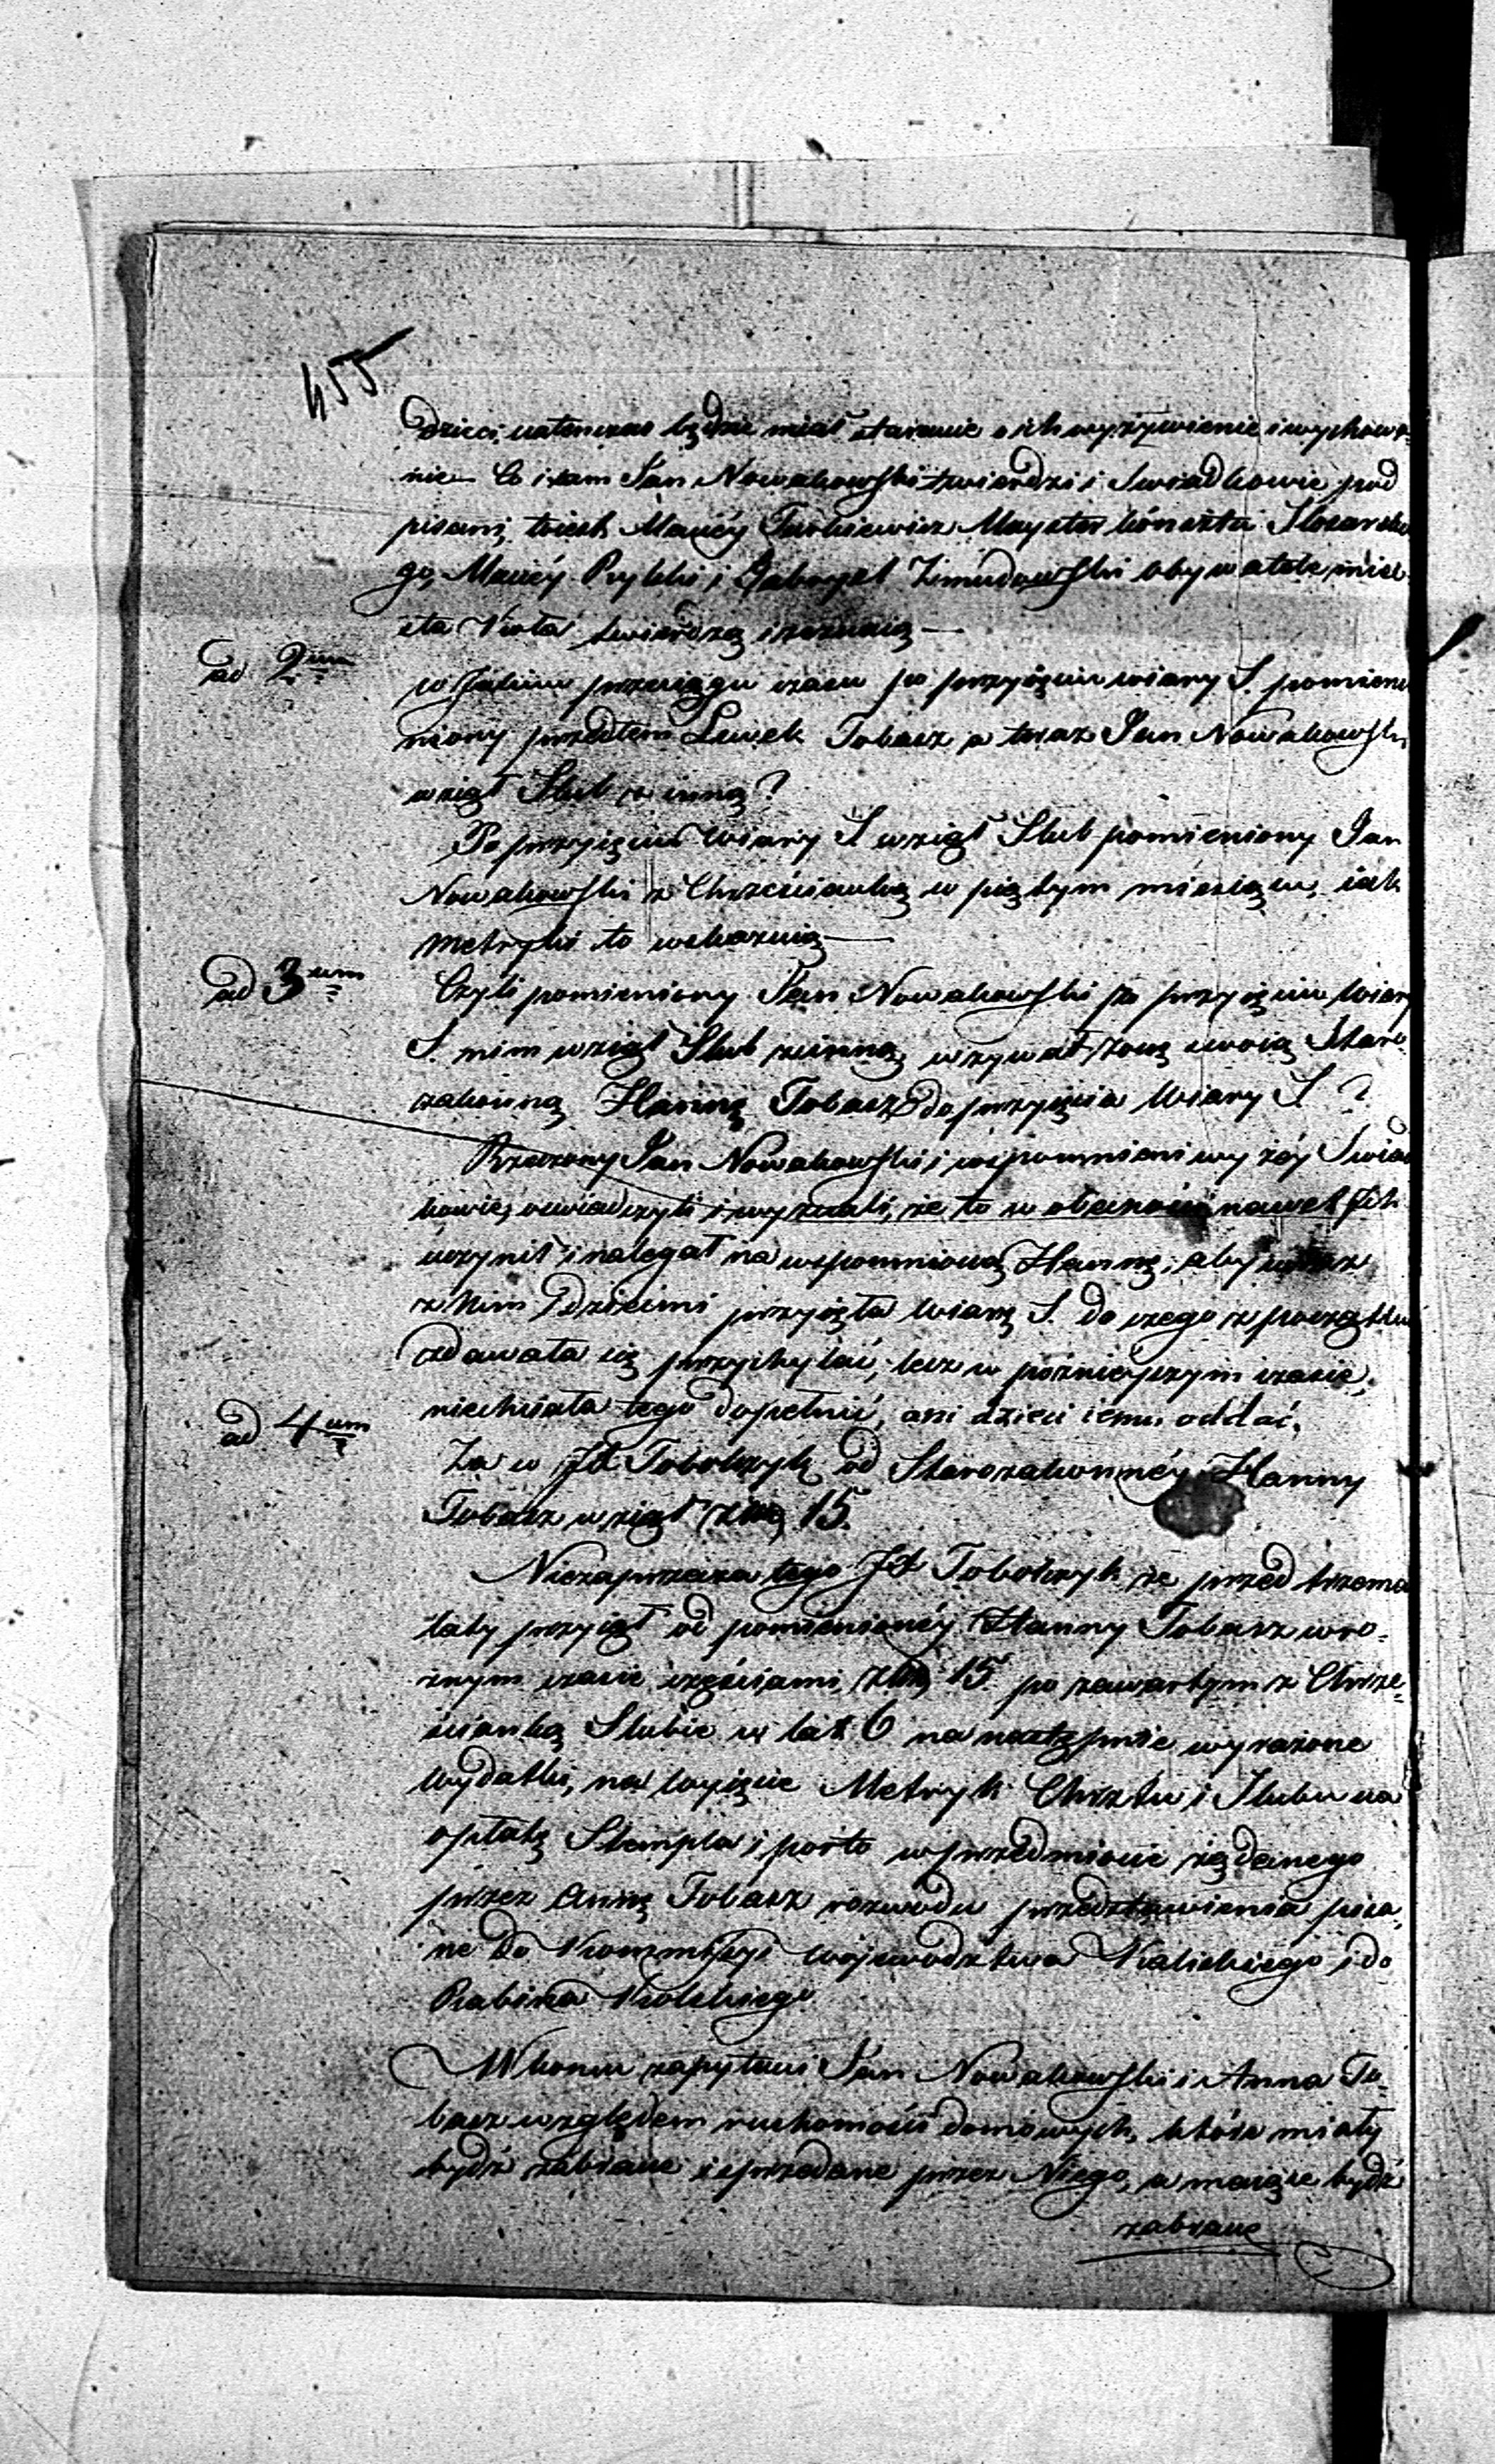 455
Dzieci, natenczas będzie miał staranie o ich wyżywienie i wychowa-
nie — Co i sam Jan Nowakowski twierdzi i Swiadkowie pod
pisani, trzech Maciéy Turkiewicz Mayster kónsztu Slosarskie
go, Maciéy Rybki i Gabryel Zmudowski obywatele mia
sta Koła twierdzą i zeznaią —
ad 2um w jakim przeciągu czasu po przyięciu wiary S. pomienio
niony przedtem Lewek Tobasz a teraz Jan Nowakowski
wziął Slub z inną?
Po przyięciu Wiary S. wziął Slub pomieniony Jan
Nowakowski z Chrześcianką w piątym miesiącu, iak
Metryki to wskazuią —
ad 3um Czyli pomieniony Jan Nowakowski po przyięciu Wiary
S. nim wziął Slub z inną, wzywał żonę swoią Staro
zakonną Hannę Tobasz do przyięcia Wiary S.?
Rzeczony Jan Nowakowski i wspomnieni wyżéy Swiad
kowie, oswiadczyli i wyznali, że to w obecności nawet Jch
uczynił i nalegał na wspomnioną Hannę, aby wraz
z Nim i Dziećmi przyięła Wiarę S. do czego z początku
zdawała się przychylać, lecz w póżnieyszym czasie,
niechciała tego dopełnić, ani dzieci iemu oddać.
ad 4um Za w Jd Tobolczyk od Starozakonnéy Hanny
Tobasz wziął 15.
Niezaprzecza tego Jd Tobolczyk że przed trzema
laty przyiął od pomienionéy Hanny Tobasz w ro-
znym czasie częściami 15 po zawartym z Chrze-
ścianką Slubie w lat 6 na następnie wyrażone
wydatki, na wyięcie Metryk Chrztu i Slubu na
opłatę Stempla i porto w przedmiocie żądanego
przez Annę Tobasz rozwodu przedstawienia pisa-
ne do Kommissyi Województwa Kaliskiego i do
Rabina Kolskiego
Wkoncu zapytani Jan Nowakowski i Anna To-
basz względem ruchomości domowych, które miały
bydź zabrane i sprzedane przez Niego, a maiące bydź
zabrane